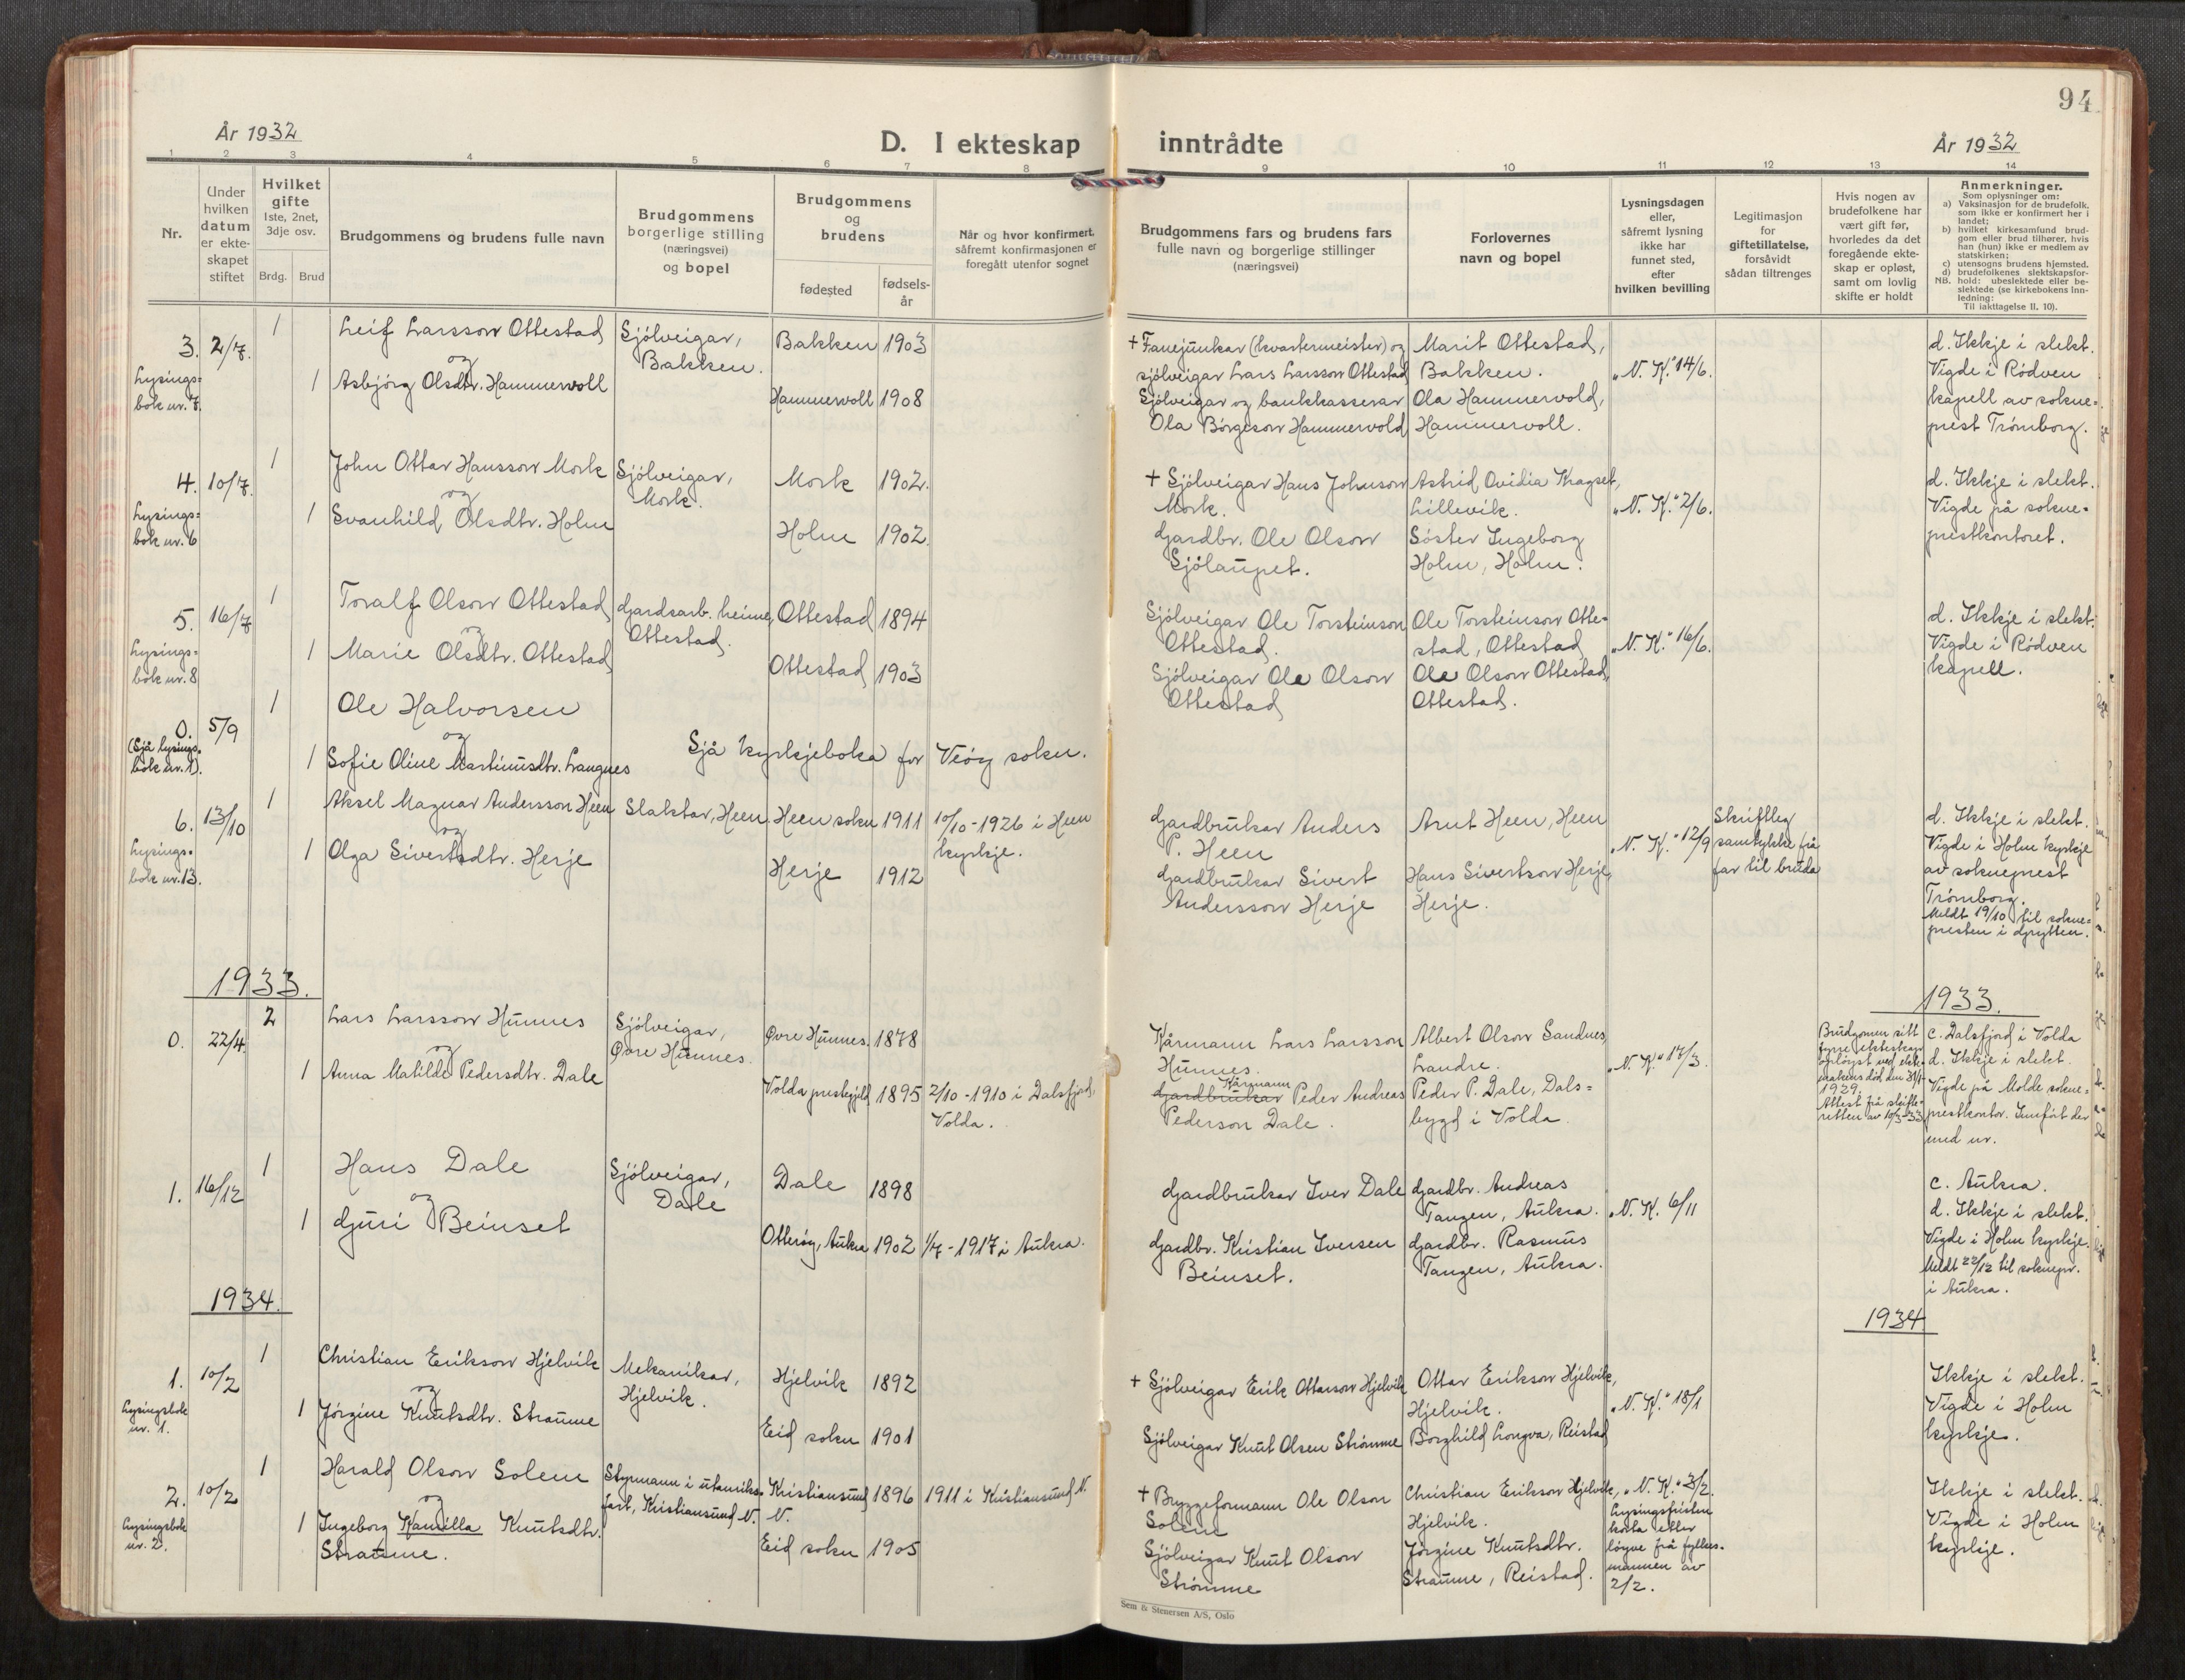 94
År 1932
D. I ekteskap inntrådte
År 1932
1 2 3 4 5 6 7 8 9 10 11 12 13 14
Nr.
Under
hvilken
datum
er ekte-
skapet
stiftet
Hvilket
gifte
1ste, 2net,
3dje osv.
Brdg. Brud
Brudgommens og brudens fulle navn
Brudgommens
borgerlige stilling
(næringsvei)
og bopel
Brudgommens
og
brudens
fødested
fødsels-
år
Når og hvor konfirmert,
såfremt konfirmasjonen er
foregått utenfor sognet
Brudgommens fars og brudens fars
fulle navn og borgerlige stillinger
(næringsvei)
Forlovernes
navn og bopel
Lysningsdagen
eller,
såfremt lysning
ikke har
funnet sted,
efter
hvilken bevilling
Legitimasjon
for
giftetillatelse,
forsåvidt
sådan tiltrenges
Hvis nogen av
brudefolkene har
vært gift før,
hvorledes da det
foregående ekte-
skap er opløst,
samt om lovlig
skifte er holdt
Anmerkninger.
Som oplysninger om:
a) Vaksinasjon for de brudefolk,
som ikke er konfirmert her i
landet;
b) hvilket kirkesamfund brud-
gom eller brud tilhører, hvis
han (hun) ikke er medlem av
statskirken;
c) utensogns brudens hjemsted.
d) brudefolkenes slektskapsfor-
NB. hold: ubeslektede eller be-
slektede (se kirkebokens inn-
ledning:
Til iakttagelse II. 10).
3. 2/7. 1
Lysings-
bok nr. 7.
Leif Larsson Ottestad
og
1 Asbjørg Olsdtr. Hammervoll
Sjölveigar,
Bakken.
Bakken 1903
Hammervoll 1908
+ Fanejunkar (kvartermeister) og
sjölveigar Lars Larsson Ottestad
Sjölveigar og bankkasserar
Ola Börgeson Hammervold
Marit Ottestad,
Bakken.
Ola Hammervold,
Hammervoll.
"N. K." 14/6.
d. Ikkje i slekt.
Vigde i Rödven
kapell av sokne-
prest Trömborg.
4. 10/7. 1
Lysings-
bok nr. 6
John Ottar Hansson Mork
og
1 Svanhild Olsdtr. Holm
Sjölveigar,
Mork.
Mork 1902.
Holm 1902.
+ Sjölveigar Hans Johnson
Mork.
Gardbr. Ole Olson
Sjölaupet.
Astrid Ovidia Kragset,
Lillevik.
Söster Ingeborg
Holm, Holm.
"N. K." 2/6.
d. Ikkje i slekt.
Vigde på sokne-
prestkontoret.
5. 16/7 1
Lysings-
bok nr. 8
Toralf Olson Ottestad
og
1 Marie Olsdtr. Ottestad
Gardsarb. heime,
Ottestad.
Ottestad 1894
Ottestad 1903
Sjölveigar Ole Torsteinson
Ottestad.
Sjölveigar Ole Olson
Ottestad
Ole Torsteinson Otte-
stad, Ottestad
Ole Olson Ottestad,
Ottestad.
"N. K." 16/6.
d. Ikkje i slekt.
Vigde i Rödven
kapell.
0. 5/9 1
(Sjå lysings-
bok nr. 1).
Ole Halvorsen
og
1 Sofie Oline Martinusdtr. Langnes
Sjå kyrkjeboka for Veöy sokn.
6. 13/10 1
Lysings-
bok nr. 13.
Aksel Magnar Andersson Heen
og
1 Olga Sivertsdtr. Herje
Slaktar, Heen
Heen sokn 1911
10/10-1926 i Heen
kyrkje.
Herje 1912
Gardbrukar Anders
P. Heen
Gardbrukar Sivert
Andersson Herje
Arnt Heen, Heen
Hans Sivertson Herje,
Herje.
"N. K." 12/9
Skriftleg
samtykke frå
far til bruda
d. Ikkje i slekt.
Vigde i Holm kyrkje
av sokneprest
Trömborg.
Meldt 19/10 til sokne-
presten i Grytten.
1933.
1933.
0. 22/4. 2
Lars Larsson Hunnes
og
1 Anna Matilde Pedersdtr. Dale
Sjölveigar,
Övre Hunnes.
Övre Hunnes. 1878
Volda prestegjeld 1895
2/10-1910 i Dalsfjord,
Volda.
Kårmann Lars Larsson
Hunnes.
Kårmann
Gardbrukar Peder Andreas
Pederson Dale.
Albert Olson Sandnes,
Landre.
Peder P. Dale, Dals-
bygd i Volda.
"N. K." 17/3.
Brudgomen sitt
fyrre ekteskap
oplöyst ved ekte-
makens död den 31/1-
1929.
Attest frå skifte-
retten av 10/3-33
c. Dalsfjord i Volda
d. Ikkje i slekt.
Vigde på Molde sokne-
prestkontor. Innfört der
med nr.
1. 16/12 1
Hans Dale
og
1 Guri Beinset
Sjölveigar,
Dale
Dale 1898
Otteröy, Aukra 1902
1/7-1917 i Aukra.
Gardbrukar Iver Dale
Gardbr. Kristian Iversen
Beinset.
Gardbr. Andreas
Tangen, Aukra.
Gardbr. Rasmus
Tangen, Aukra.
"N. K. 6/11
c. Aukra.
d. Ikkje i slekt.
Vigde i Holm kyrkje.
Meldt 22/12 til soknepr.
i Aukra.
1934.
1934
1. 10/2 1
Lysingsbok
nr. 1.
Christian Erikson Hjelvik
og
1 Jörgine Knutsdtr. Straume
Mekanikar,
Hjelvik.
Hjelvik 1892
Eid sokn 1901
+ Sjölveigar Erik Ottarson Hjelvik
Sjölveigar Knut Olsen Strömme
Ottar Erikson Hjelvik,
Hjelvik.
Borghild Longva, Reistad
"N. K." 18/1
Ikkje i slekt.
Vigde i Holm
kyrkje.
2. 10/2 1
Lysingsbok
nr. 2.
Harald Olson Solem
og
1 Ingeborg Kamilla Knutsdtr.
Straume.
Styrmann i utanriks-
fart, Kristiansund N.
Kristiansund
N.
1896
1911 i Kristiansund N.
Eid sokn 1905
+ Bryggeformann Ole Olson
Solem
Sjölveigar Knut Olson
Strömme
Christian Erikson Hjelvik,
Hjelvik.
Jörgine Knutsdtr.
Straume, Reistad.
"N. K." 3/2.
Lysingsfristen
korta etter
löyve frå fylkes-
mannen av
2/2.
Ikkje i slekt.
Vigde i Holm
kyrkje.
Sem & Stenersen A/S, Oslo